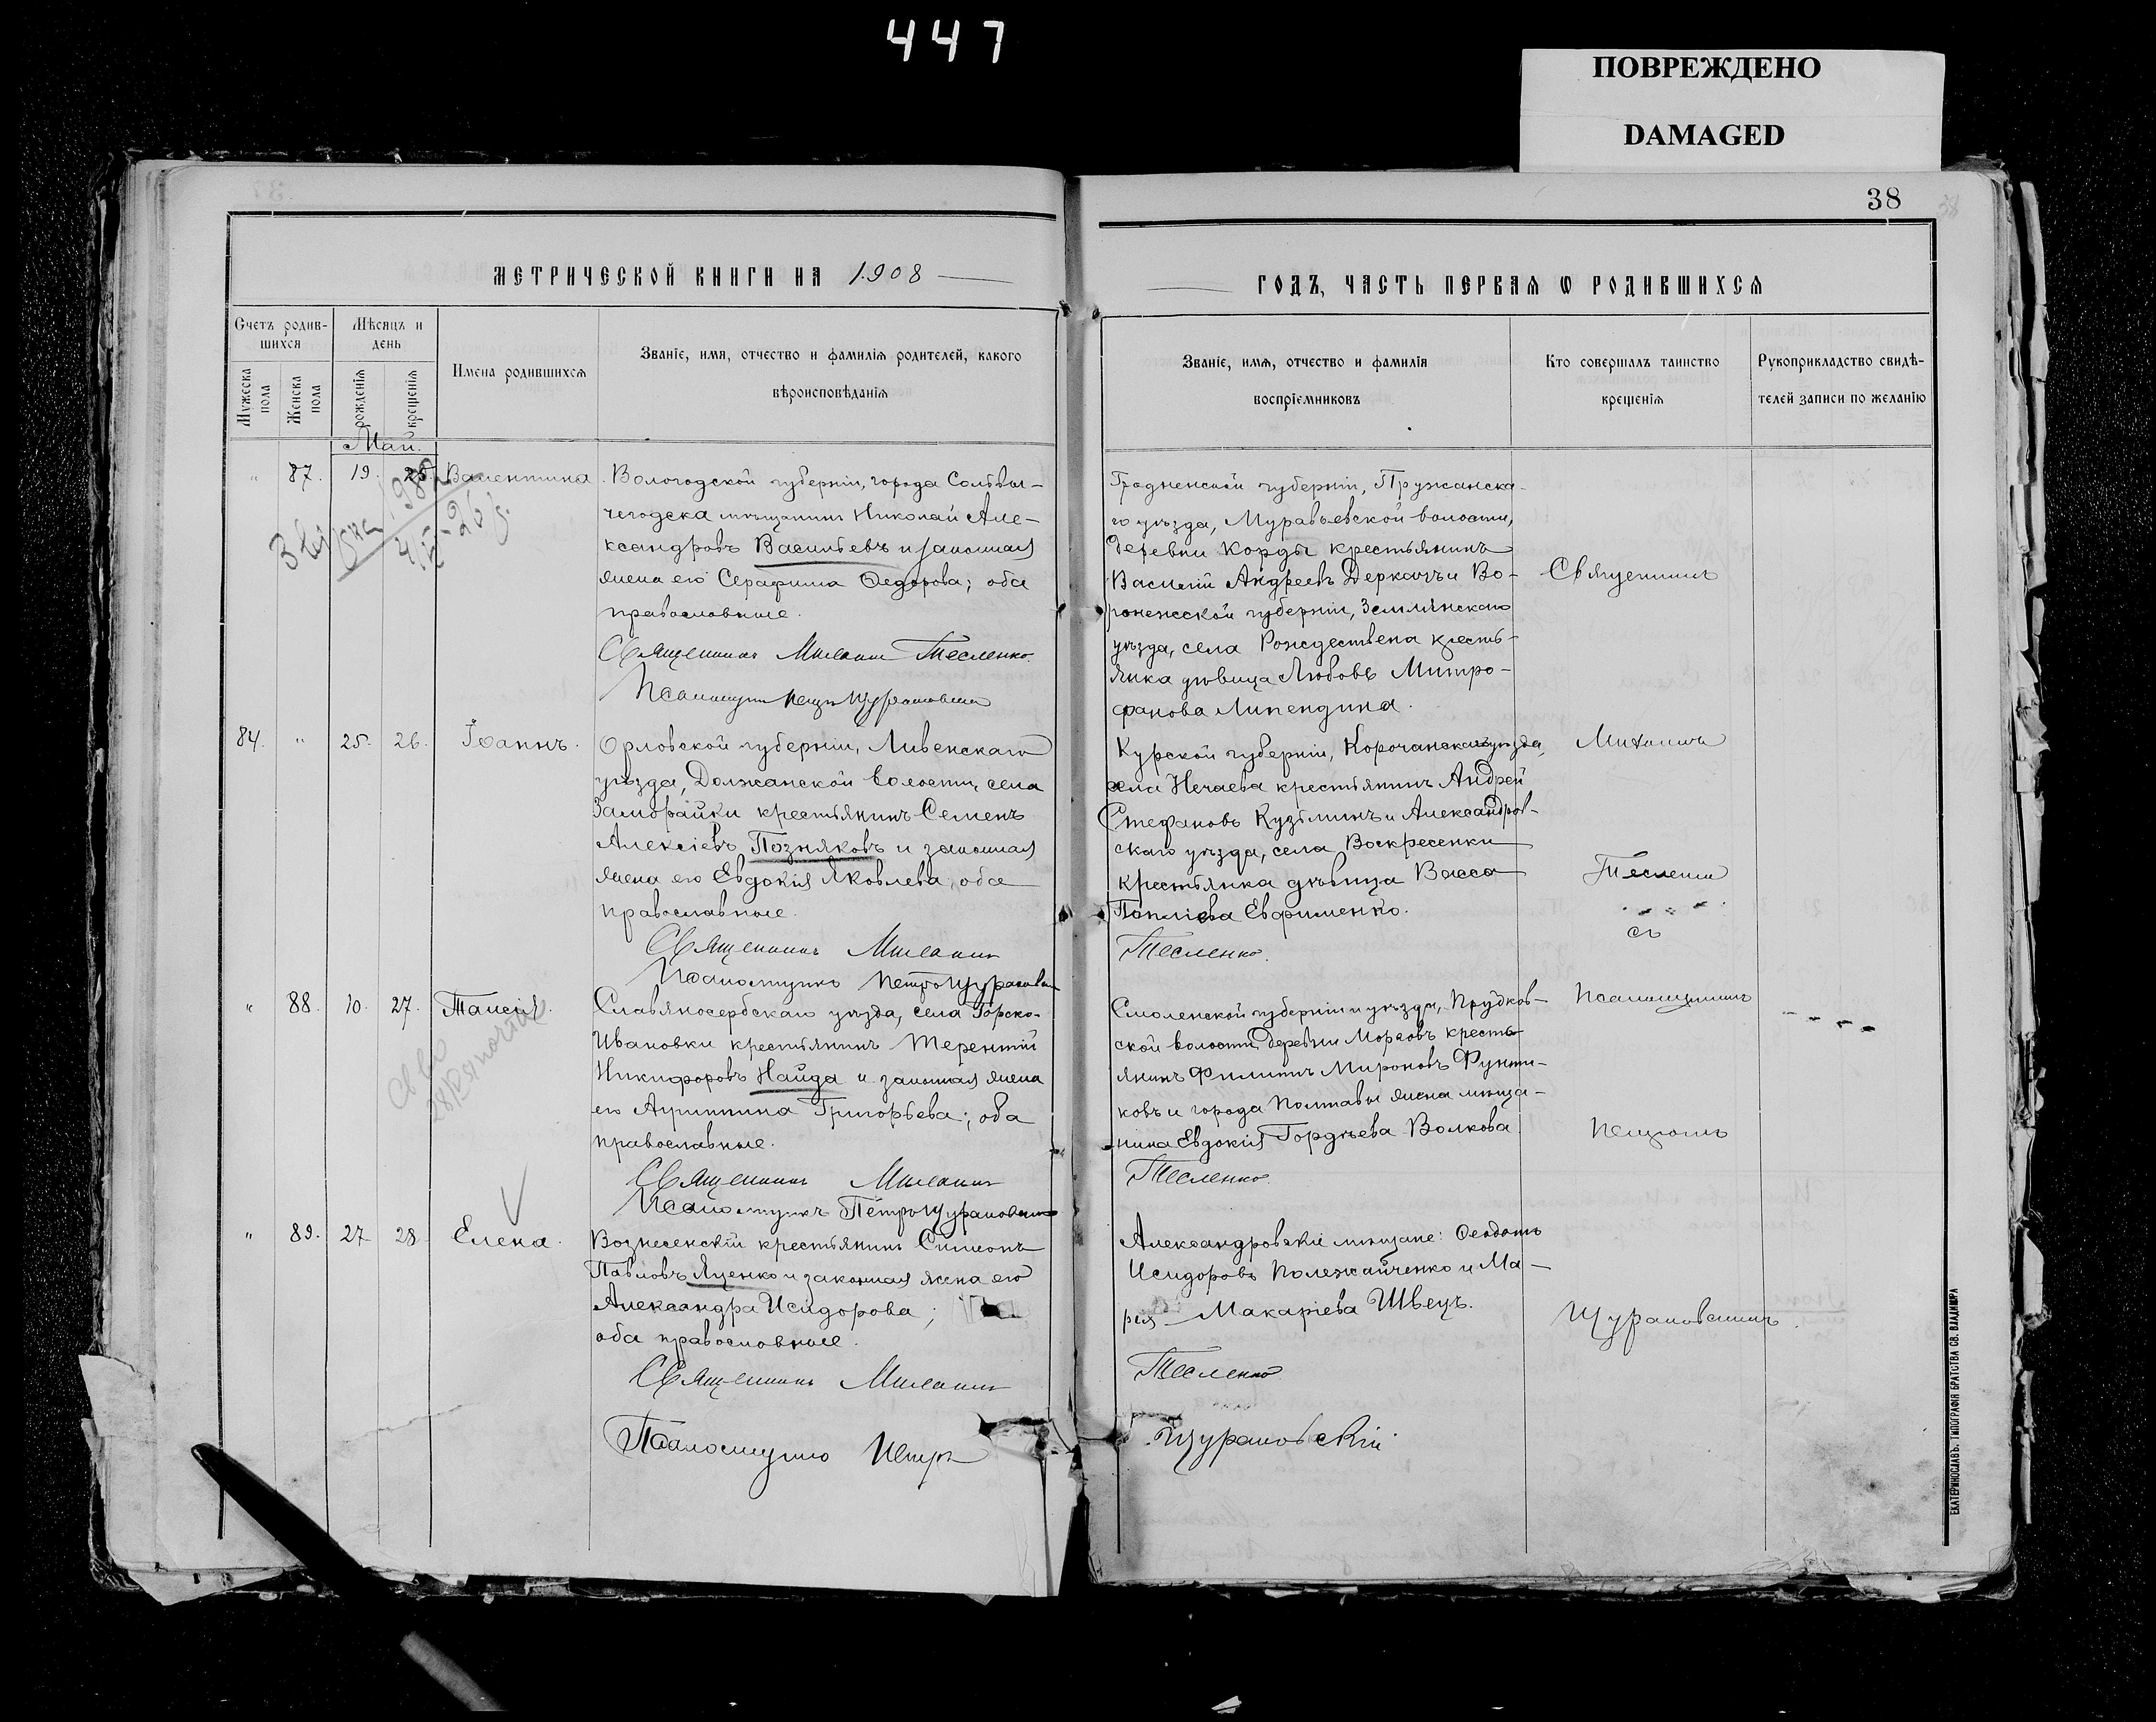 447
ПОВРЕЖДЕНО
DAMAGED
38
МЕТРИЧЕСКОЙ КНИГИ НА 1908
Счетъ родив-
шихся
Мѣсяцъ и
день
Имена родившихся
Званіе, имя, отчество и фамилія родителей, какого
вѣроисповѣданія
Мужеска
пола
Женска
пола
рожденія
крещенія
Май.
" 87. 19. 25. Валентина.
Вологодской губерніи, города Сольвы-
чегодска мѣщанинъ Николай Але-
ксандровъ Васильевъ и законная
жена его Серафима Ѳедорова; оба
православные.
Священникъ Михаилъ Тесленко.
Псаломщикъ Петръ Щурановскій
84. " 25. 26. Іоаннъ.
Орловской губерніи, Ливенскаго
уѣзда, Должанской волости, села
Заморайки крестьянинъ Семенъ
Алексіевъ Позняковъ и законная
жена его Евдокія Яковлева; оба
православные.
Священникъ Михаилъ
Псаломщикъ Петръ Щурановскій
" 88. 10. 27. Таисія.
Славяносербскаго уѣзда, села Горско-
Ивановки крестьянинъ Терентій
Никифоровъ Найда и законная жена
его Агриппина Григорьева; оба
православные.
Священникъ Михаилъ
Псаломщикъ Петръ Щурановскій
" 89. 27 28 Елена.
Вознесенскій крестьянинъ Симеонъ
Павловъ Яценко и законная жена его
Александра Исидорова;
оба православные.
Священникъ Михаилъ
Псаломщикъ Петръ
ГОДЪ, ЧАСТЬ ПЕРВАЯ Ѡ РОДИВШИХСЯ
Званіе, имя, отчество и фамилія
воспріемниковъ
Кто совершалъ таинство
крещенія
Рукоприкладство свидѣ-
телей записи по желанію
Гродненской губерніи, Пружанска-
го уѣзда, Муравьевской волости,
деревни Корды крестьянинъ
Василій Андреевъ Деркачъ и Во-
ронежской губерніи, Землянскаго
уѣзда, села Рождествена кресть-
янка дѣвица Любовь Митро-
фанова Липендина.
Курской губерніи, Корочанскаго уѣзда,
села Нечаева крестьянинъ Андрей
Стефановъ Кузьминъ и Александров-
скаго уѣзда, села Воскресенки
крестьянка дѣвица Васса
Ефименко.
Тесленко.
Смоленской губерніи и уѣзда, Прудков-
ской волости, деревни кресть-
янинъ Филиппъ Мироновъ
и города Полтавы жена мѣща-
нина Евдокія Гордѣева Волкова.
Тесленко.
Александровскіе мѣщане: Ѳеодотъ
Исидоровъ Полежайченко и Ма-
рія Макаріева Швецъ.
Тесленко
Щурановскій.
Священникъ
Михаилъ
Тесленко
съ
Псаломщикомъ
Петромъ
Щурановскимъ.
ЕКАТЕРИНОСЛАВЪ. ТИПОГРАФІЯ БРАТСТВА СВ. ВЛАДИМІРА